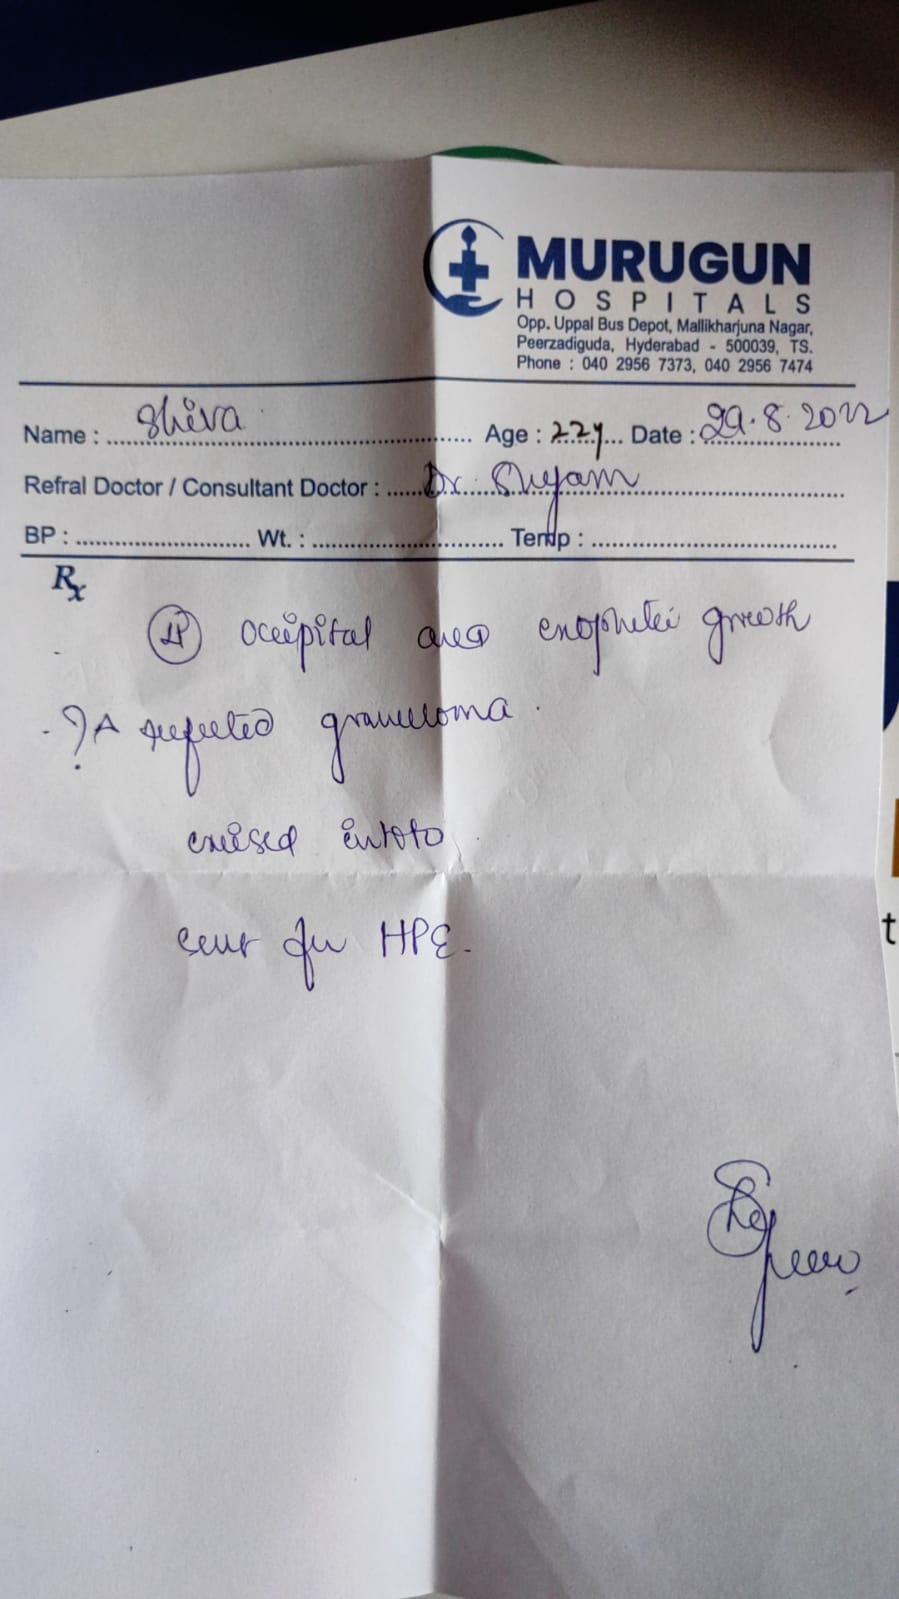 MURUGUN
HOSPITALS
Opp. Uppal Bus Depot, Mallikharjuna Nagar,
Peerzadiguda, Hyderabad - 500039, TS.
Phone : 040 2956 7373, 040 2956 7474
Name : Shiva Age : 22y Date : 29.8.2022
Refral Doctor / Consultant Doctor : Dr. Shyam
BP : Wt. : Temp :
Rx
Occipital area exophytic growth
? A infected granuloma.
excised intoto.
sent for HPE.
t